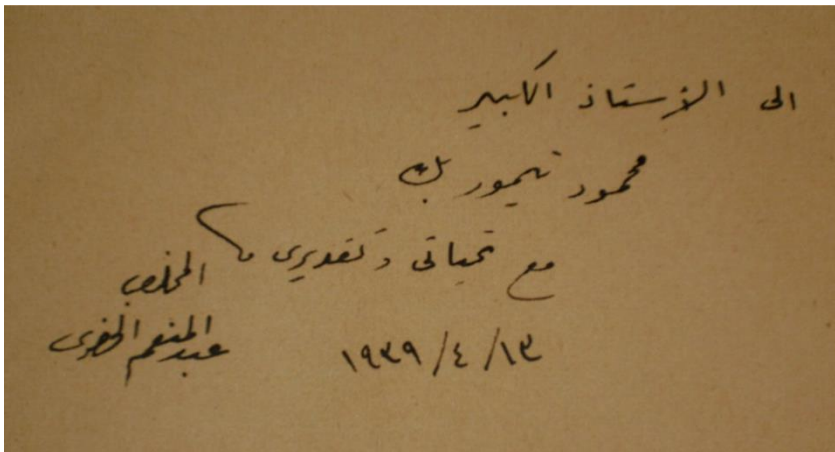 الى الأستاذ الكبير
محمود تيمور بك
مع تحياتى وتقديرى
المخلص
عبد المنعم
١٣/٤/١٩٣٩